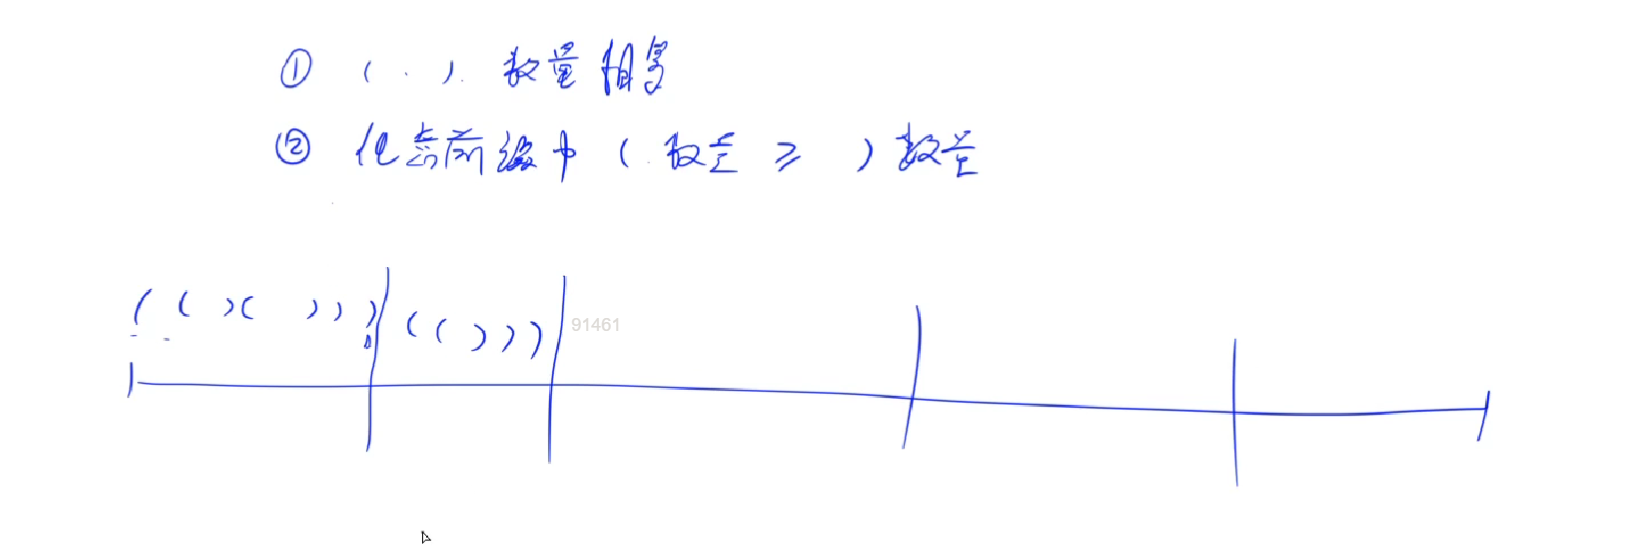 ① ( . ) 数量相等
② 任意前缀中 ( 数量 ≥ ) 数量
( ( ) ( ) ) ) ( ( ) ) )
91461